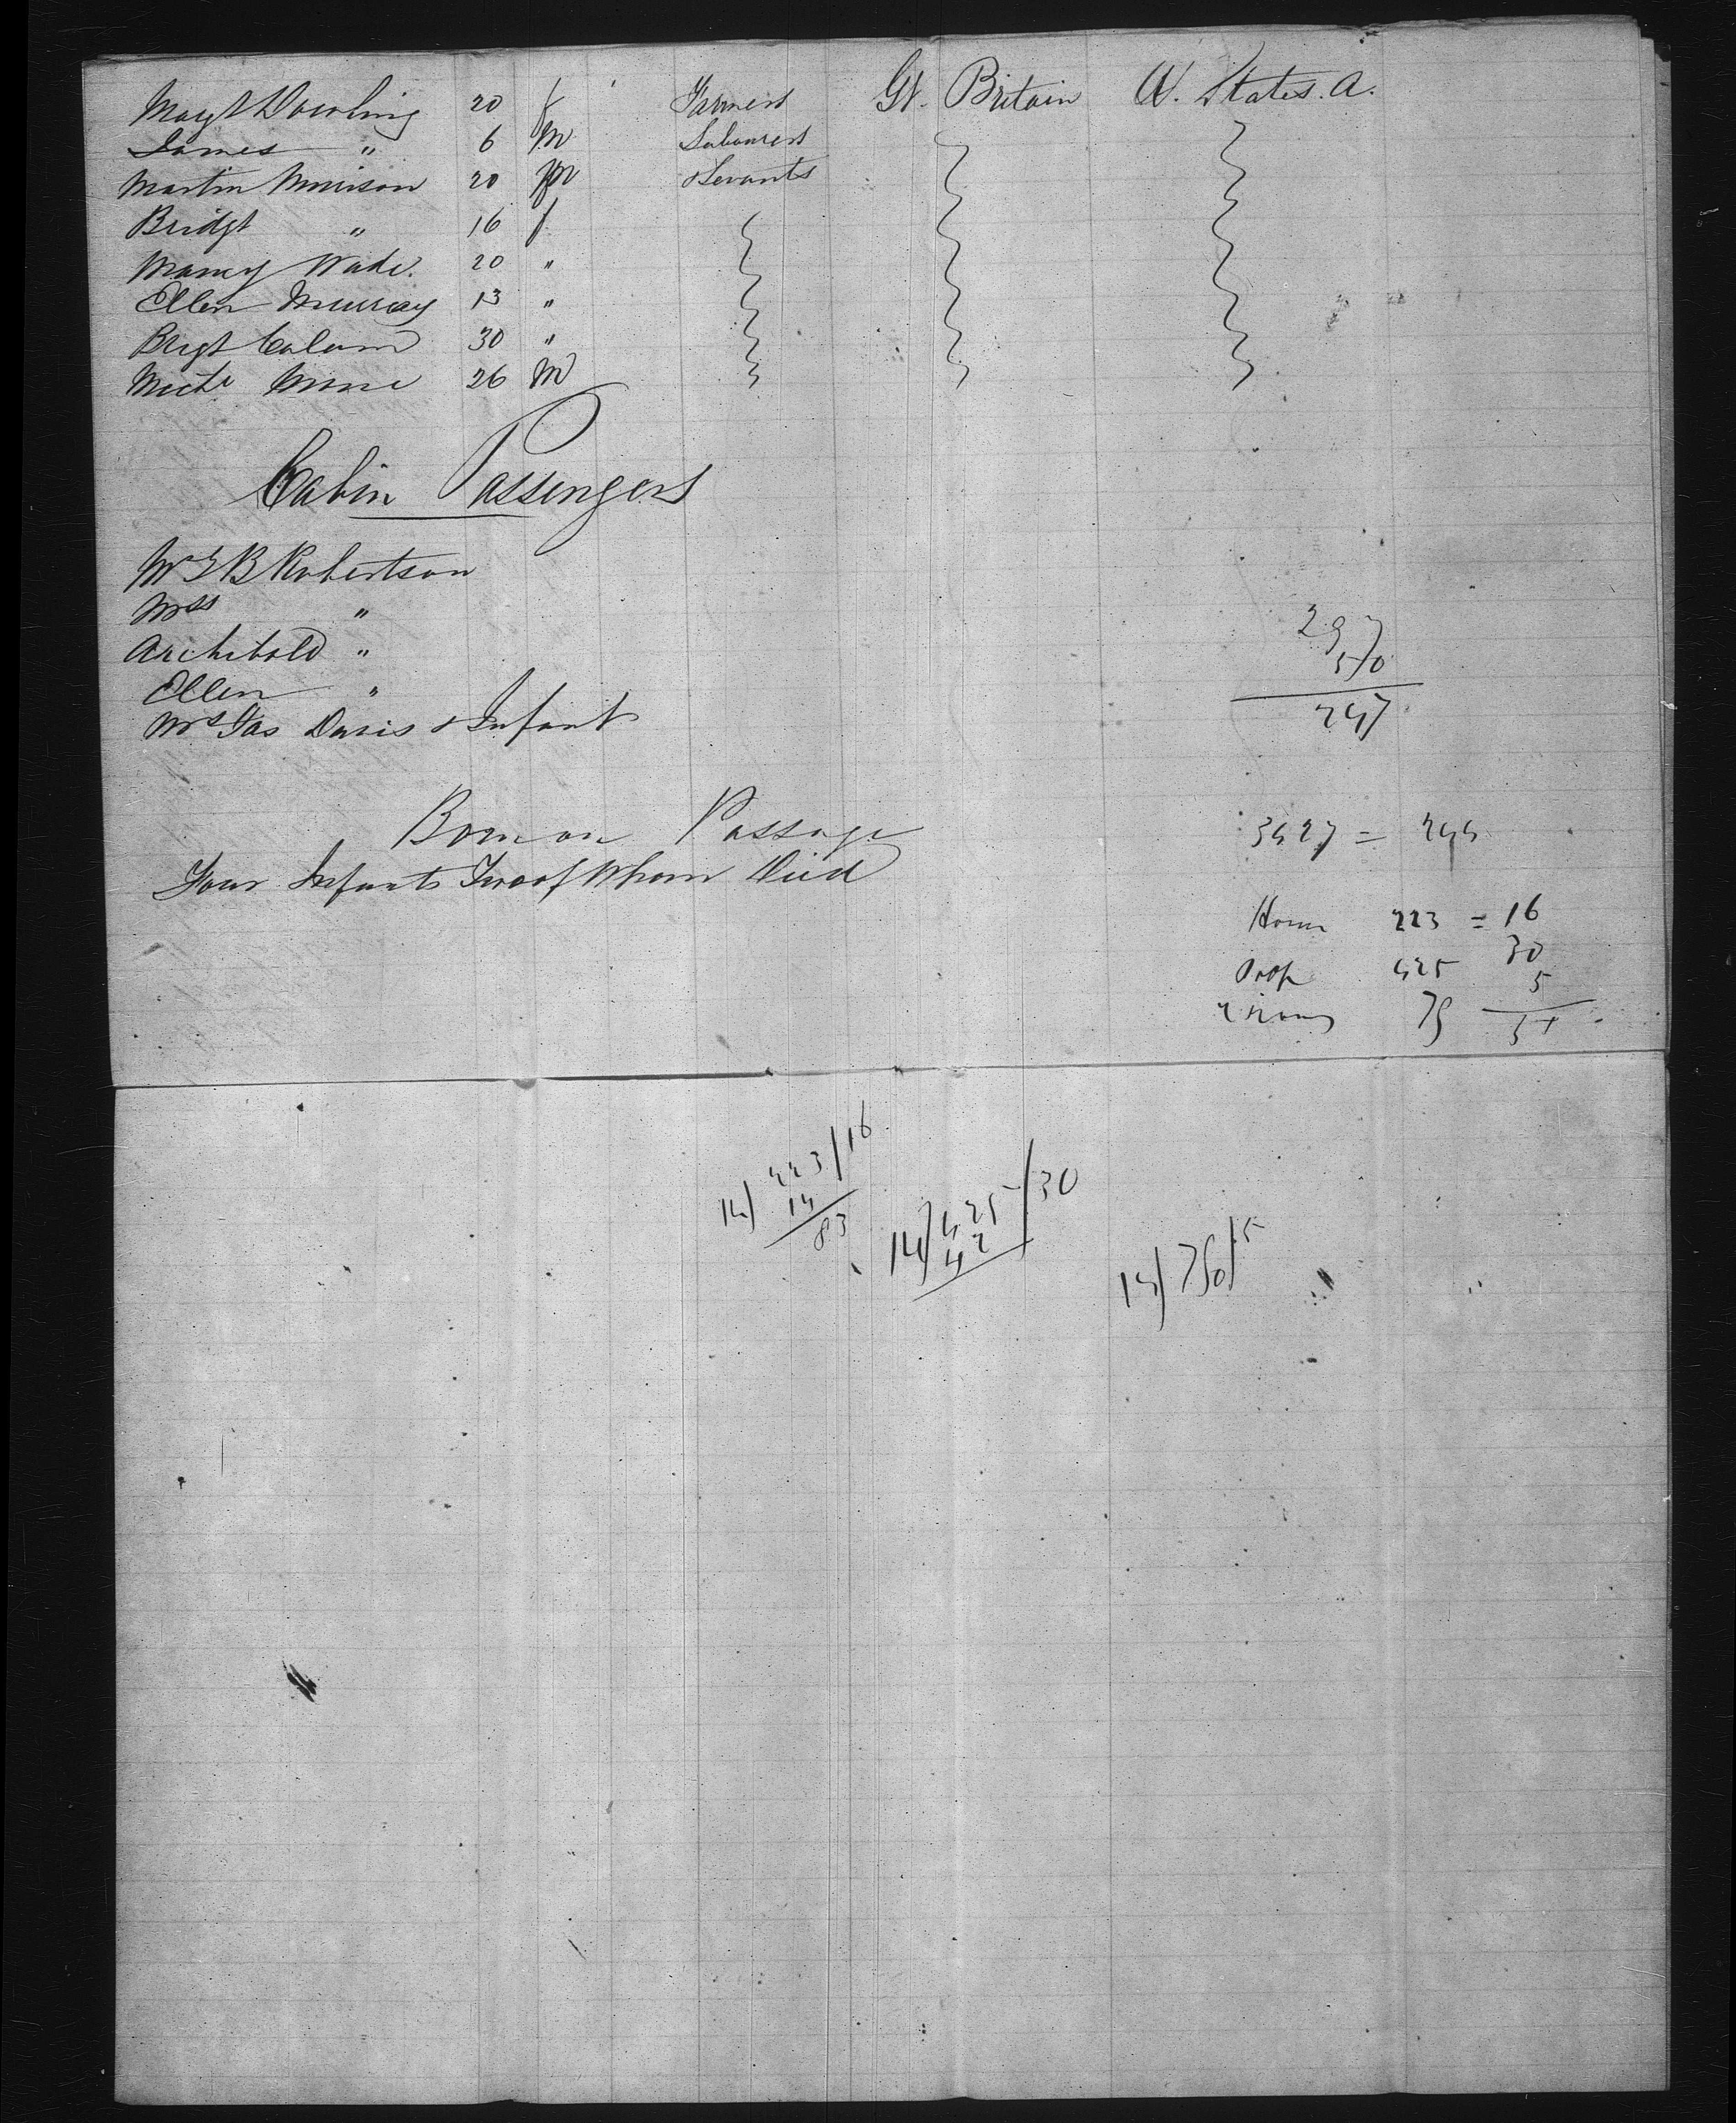 Margt Dowling 20 f Farmers Gt. Britain U. States. A.
James " 6 m Labourers
Martin Morrison 20 m Servants
Bridgt " 16 f
Nancy Wade. 20 "
Ellen Murray 13 "
Brigt 30 "
Michl 26 M
Cabin Passengers
B Robertson
Mrss "
Archibald "
Ellen "
Mrs Jas Davis & Infant
297
50
247
Born on Passage
3427 = 244
Four Infants Two of Whom Died
223 = 16
425 30
5
79 51
14) 223/16
14
83
14) 425/30
42
14) 5